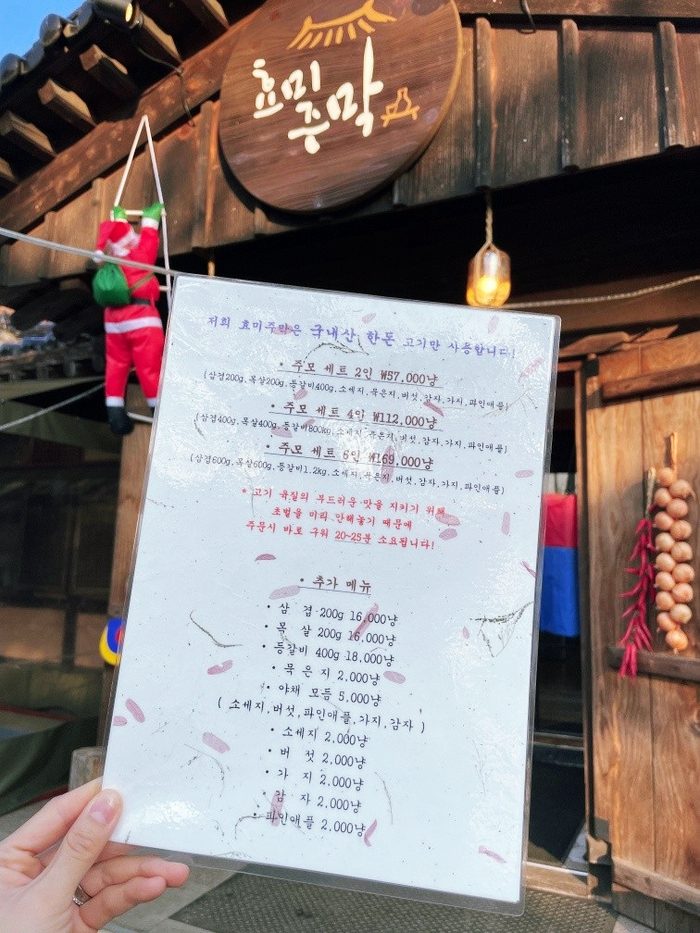 효미
주막
저희 효미주막은 국내산 한돈 고기만 사용합니다!
• 주모 세트 2인 ₩57,000냥
(삼겹200g,목살200g,등갈비400g,소세지,묵은지,버섯,감자,가지,파인애플)
• 주모 세트 4인 ₩112,000냥
(삼겹400g,목살400g,등갈비800kg,소세지,묵은지,버섯,감자,가지,파인애플)
• 주모 세트 6인 ₩169,000냥
(삼겹600g,목살600g,등갈비1.2kg,소세지,묵은지,버섯,감자,가지,파인애플)
* 고기 육질의 부드러운 맛을 지키기 위해
초벌을 미리 안해놓기 때문에
주문시 바로 구워 20~25분 소요됩니다!
• 추가 메뉴
• 삼 겹 200g 16,000냥
• 목 살 200g 16,000냥
• 등갈비 400g 18,000냥
• 묵 은 지 2,000냥
• 야채 모듬 5,000냥
( 소세지,버섯,파인애플,가지,감자 )
• 소세지 2,000냥
• 버 섯 2,000냥
• 가 지 2,000냥
• 감 자 2,000냥
• 파인애플 2,000냥